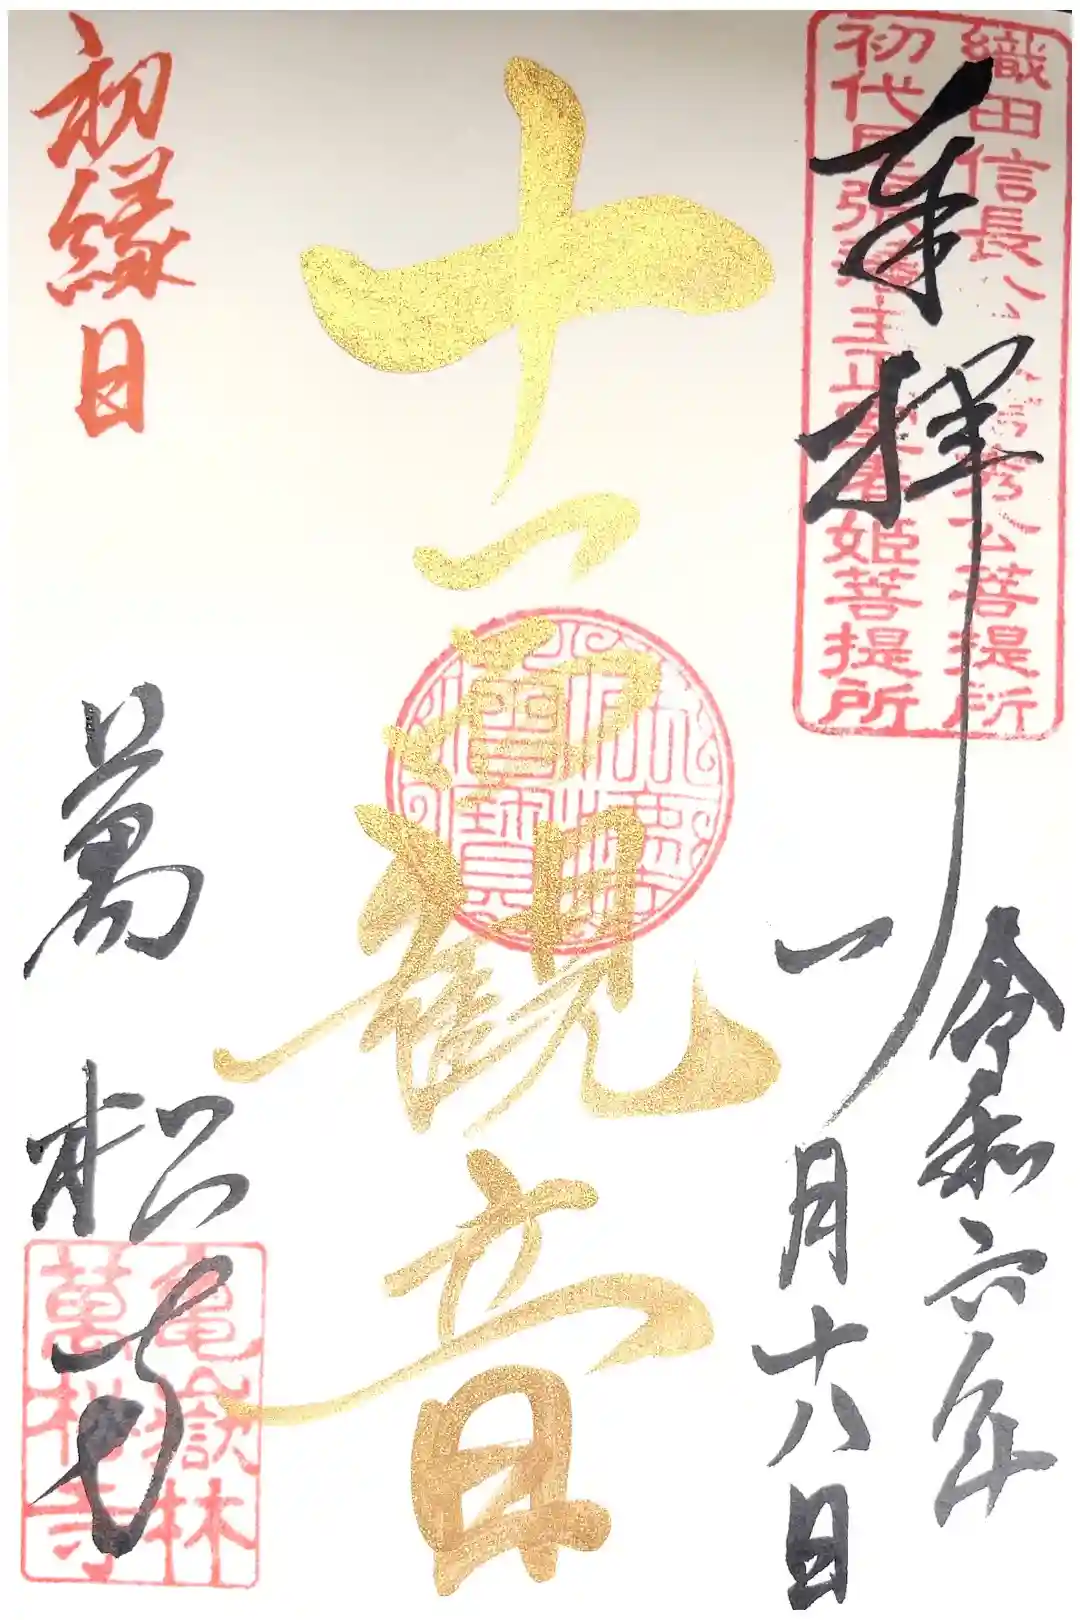 織田信長公
秀公菩提所
初代尾張藩主正室春姫菩提所
奉拝
令和六年
一月十八日
十一面観音
初縁日
萬松寺
亀嶽林
萬松寺